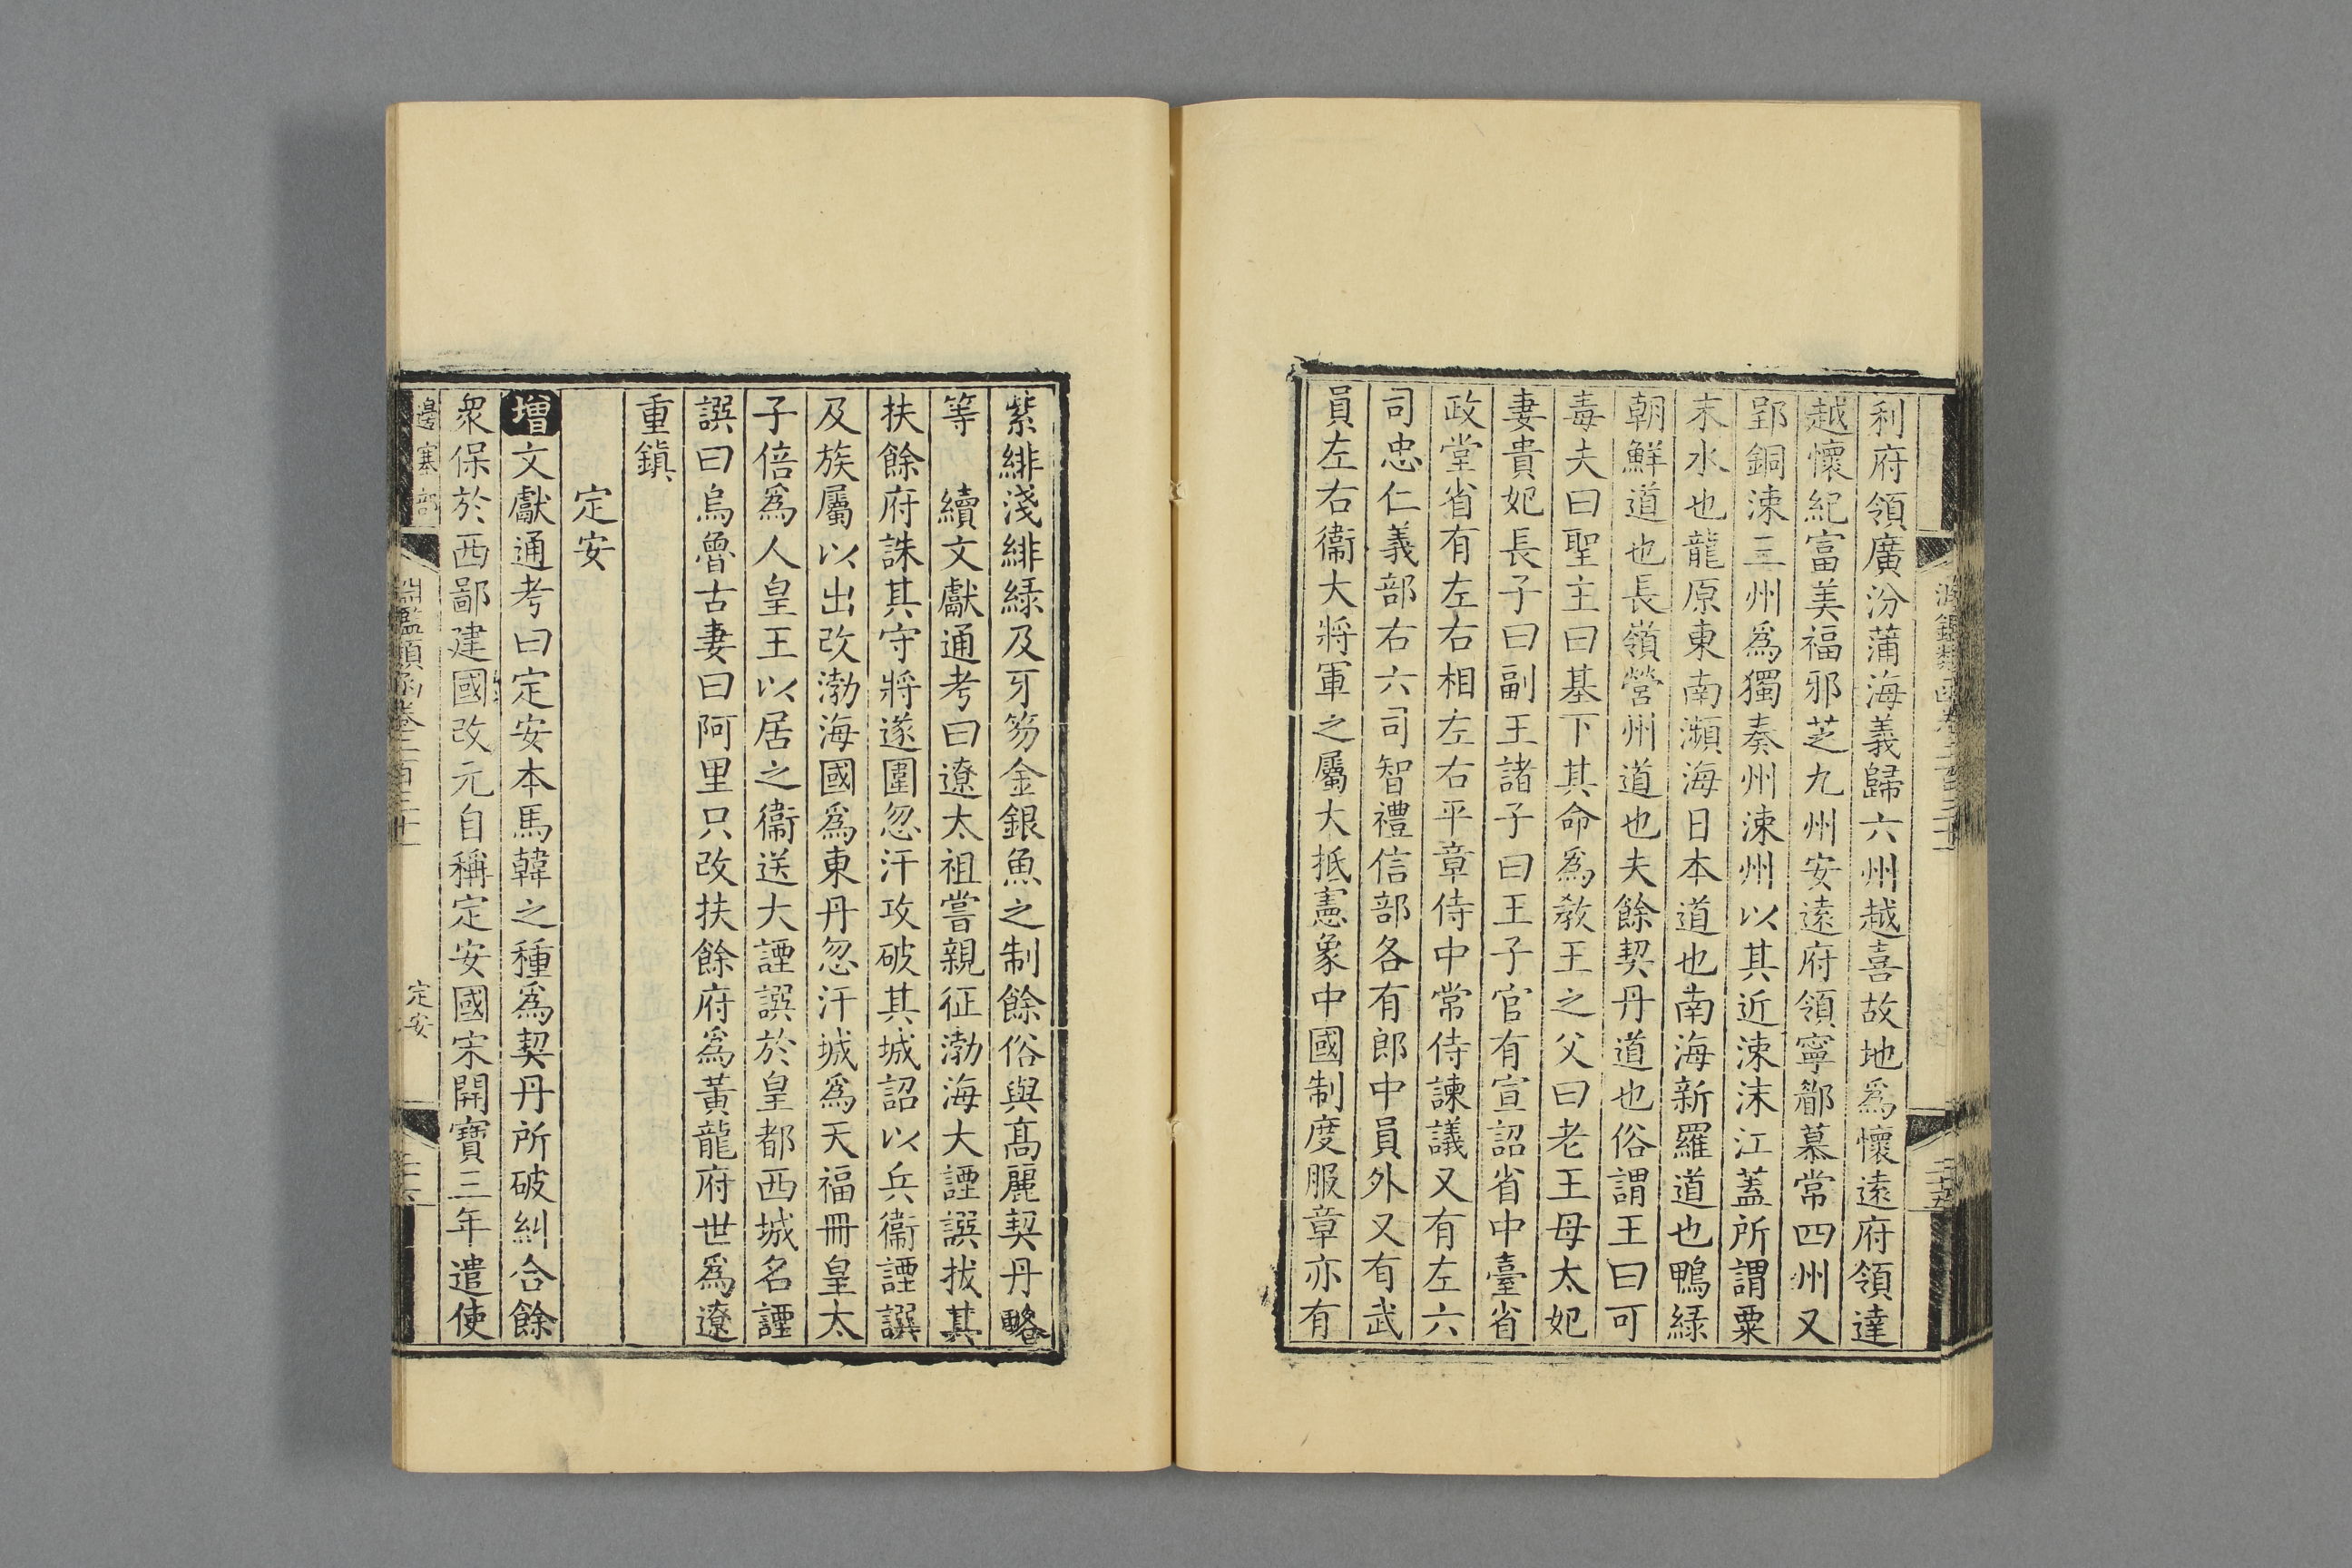 利府領廣汾蒲海義歸六州越喜故地爲懷遠府領達
越懷紀富美福邪芝九州安遠府領寧郿慕常四州又
郢銅涑三州爲獨奏州涑州以其近涑沫江蓋所謂粟
末水也龍原東南瀕海日本道也南海新羅道也鴨綠
朝鮮道也長嶺營州道也夫餘契丹道也俗謂王曰可
毒夫曰聖主曰基下其命爲敎王之父曰老王母太妃
妻貴妃長子曰副王諸子曰王子官有宣詔省中臺省
政堂省有左右相左右平章侍中常侍諫議又有左六
司忠仁義部右六司智禮信部各有郎中員外又有武
員左右衞大將軍之屬大抵憲象中國制度服章亦有
紫緋淺緋綠及牙笏金銀魚之制餘俗與髙麗契丹略
等　續文獻通考曰遼太祖嘗親征渤海大諲譔拔其
扶餘府誅其守將遂圍忽汗攻破其城詔以兵衞諲譔
及族屬以出改渤海國爲東丹忽汗城爲天福冊皇太
子倍爲人皇王以居之衞送大諲譔於皇都西城名諲
譔曰烏魯古妻曰阿里只改扶餘府爲黃龍府世爲遼
重鎭
定安
增文獻通考曰定安本馬韓之種爲契丹所破糾合餘
衆保於西鄙建國改元自稱定安國宋開寶三年遣使
邊塞部　淵鑑類函卷二百三十一　定安　二十六